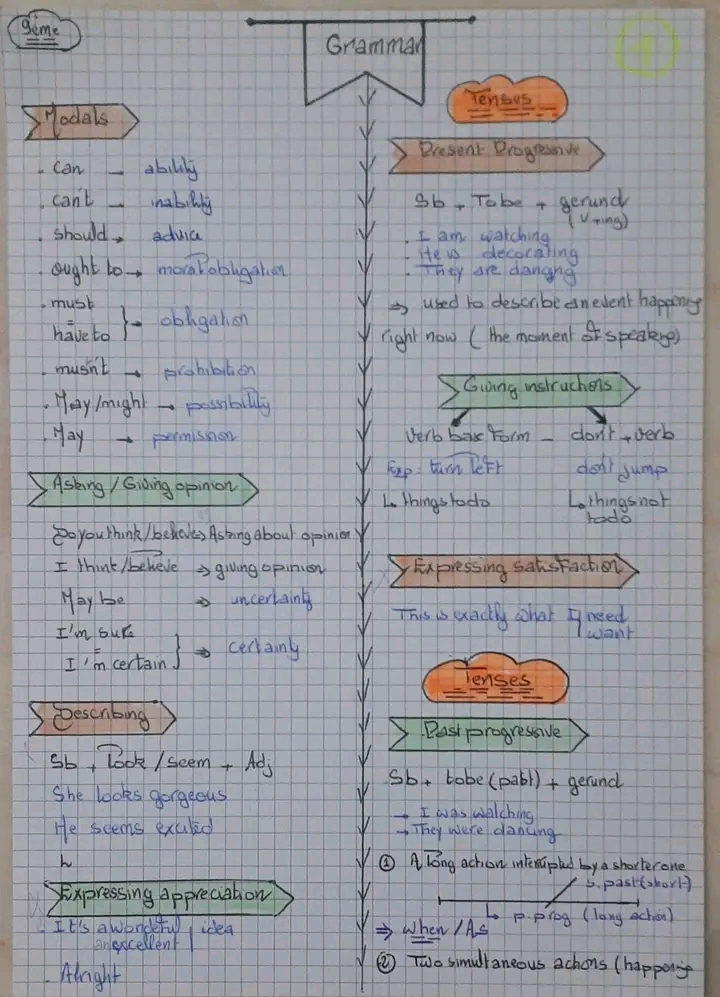 9ème
Grammar
1
Modals
. can → ability
. can't → inability
. should → advice
. ought to → moral obligation
. must
=
have to } → obligation
. musn't → prohibition
. May/might → possibility
. May → permission
Asking / Giving opinion
Do you think/believe → Asking about opinion
I think/believe → giving opinion
May be ⇒ uncertainty
I'm sure
=
I'm certain } ⇒ certainty
Describing
Sb + Look / seem + Adj
She looks gorgeous
He seems excited
Expressing appreciation
. It's a wonderful idea
an excellent
. Alright
Tenses
Present Progressive
Sb + To be + gerund
(V+ing)
. I am watching
. He is decorating
. They are dancing
⇒ used to describe an event happening
right now ( the moment of speaking)
Giving instructions
verb base form - don't + verb
Exp: turn left don't jump
↳ things to do ↳ things not
to do
Expressing satisfaction
This is exactly what I need
want
Tenses
Past progressive
Sb + to be (past) + gerund
→ I was watching
→ They were dancing
① A long action interrupted by a shorter one
s. past (short)
↳ p. prog (long action)
⇒ when / As
② Two simultaneous actions (happening